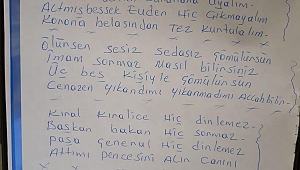 Uyalım-
Altmışbessek Evden Hiç Çıkmayalım
Korona belasından Tez Kurtulalım-
Ölünsen sesiz sedasız gömülünsün
İmam sormaz Nasıl bilinsiniz
Üç beş kişiyle gömülünsun
Cenazen yıkandımı yıkanmadımı Allahbilin-
Kıral Kıralice Hiç dinlemez-
Başkan bakan Hiç sormaz-
paşa general Hiç dinlemez
Attımı pençesini Alın Canını